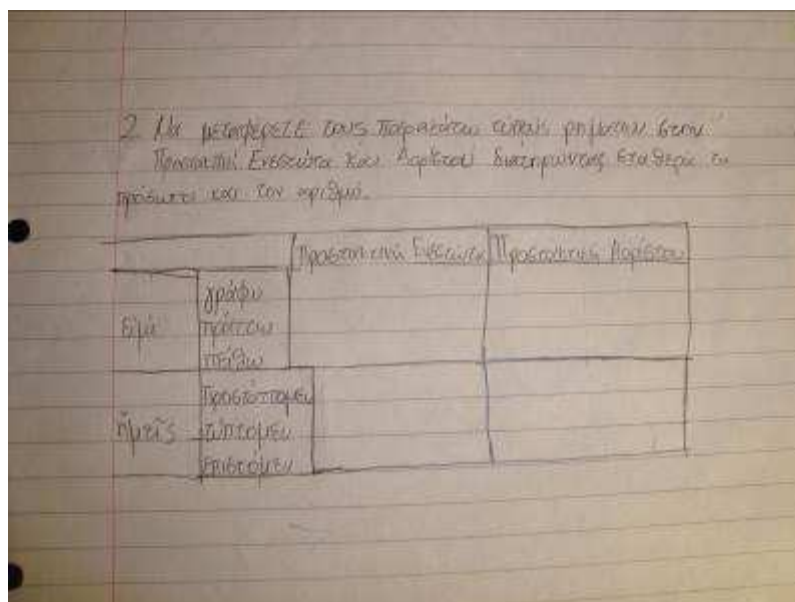 2. Να μεταφέρετε τους παρακάτω τύπους ρημάτων στην
Προστακτική Ενεστώτα και Αορίστου διατηρώντας σταθερά το
πρόσωπο και τον αριθμό.
Προστακτική Ενεστώτα Προστακτική Αορίστου
γράφω
πράττω
πείθω
ἡμεῖς
Προστάττομεν